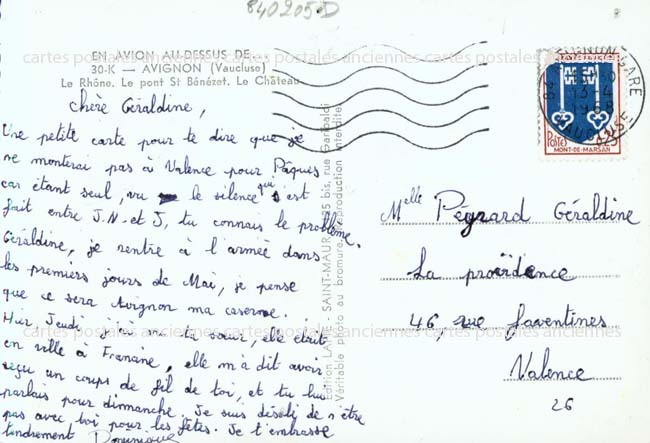 840205.D
EN AVION AU-DESSUS DE
30-K — AVIGNON (Vaucluse)
Le Rhône. Le pont St Bénézet. Le Château
Chère Géraldine,
Une petite carte pour te dire que je
ne monterai pas à Valence pour Pâques
car étant seul, vu le silence qui s'est
fait entre J.N. et J, tu connais le problème.
Géraldine, je rentre à l'armée dans
les premiers jours de Mai, je pense
que ce sera Avignon ma caserne.
Hier Jeudi j'ai vu ta sœur, elle était
en ville à Francine, elle m'a dit avoir
reçu un coups de fil de toi, et tu lui
parlais pour dimmanche. Je suis désolé de n'être
pas avec toi pour les fêtes. Je t'embrasse
tendrement Dominique
Edition SAINT-MAUR 5 bis, rue Garibaldi
Véritable photo au bromure. Reproduction interdite
POSTES
MONT-DE-MARSAN
AVIGNON GARE
13-4
1968
VAUCLUSE
84
Melle Pégrard Géraldine
La providence
46, rue faventines
Valence
26
cartes postales anciennes cartes postales anciennes cartes postales anciennes
cartes postales anciennes cartes postales anciennes cartes postales anciennes